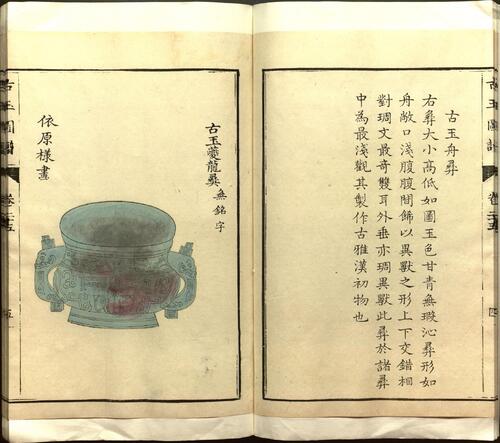 古玉舟彝
右彝大小高低如圖玉色甘青無瑕沁彝形如
舟敞口淺腹腹間飾以異獸之形上下交錯相
對琱文最奇雙耳外垂亦琱異獸此彝於諸彝
中為最淺觀其製作古雅漢初物也
古玉圖譜
卷二十五
古玉夔龍彝 無銘字
依原樣畫
古玉圖譜
卷二十五